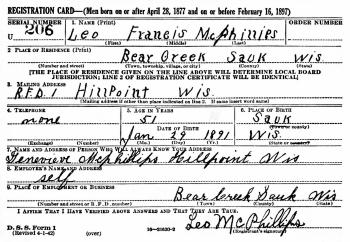 REGISTRATION CARD—(Men born on or after April 28, 1877 and on or before February 16, 1897)
SERIAL NUMBER 1. NAME (Print) ORDER NUMBER
U 206 Leo Francis McPhillips
(First) (Middle) (Last)
2. PLACE OF RESIDENCE (Print)
Bear Creek Sauk Wis.
(Number and street) (Town, township, village, or city) (County) (State)
[THE PLACE OF RESIDENCE GIVEN ON THE LINE ABOVE WILL DETERMINE LOCAL BOARD
JURISDICTION; LINE 2 OF REGISTRATION CERTIFICATE WILL BE IDENTICAL]
3. MAILING ADDRESS
R.F.D. 1 Hillpoint Wis.
[Mailing address if other than place indicated on line 2. If same insert word same]
4. TELEPHONE 5. AGE IN YEARS 6. PLACE OF BIRTH
none 51 Sauk
DATE OF BIRTH (Town or county)
Jan 29 1891 Wis.
(Exchange) (Number) (Mo.) (Day) (Yr.) (State or country)
7. NAME AND ADDRESS OF PERSON WHO WILL ALWAYS KNOW YOUR ADDRESS
Genevieve McPhillips Hillpoint Wis
8. EMPLOYER'S NAME AND ADDRESS
self
9. PLACE OF EMPLOYMENT OR BUSINESS
Bear Creek Sauk Wis
(Number and street or R. F. D. number) (Town) (County) (State)
I AFFIRM THAT I HAVE VERIFIED ABOVE ANSWERS AND THAT THEY ARE TRUE.
D. S. S. Form 1
(Revised 4-1-42) (over) 16—21630-2 Leo McPhillips
(Registrant's signature)